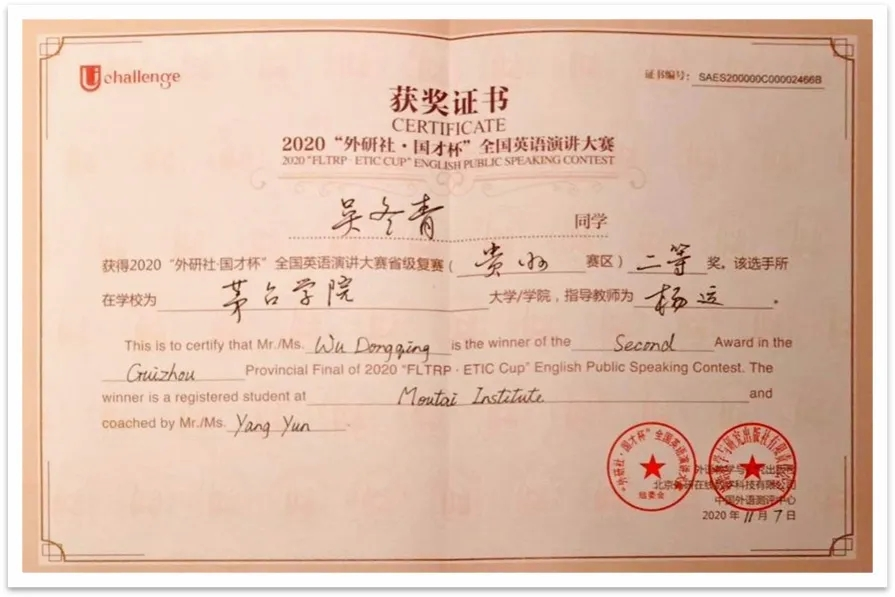 Uchallenge
证书编号: SAES200000C00002466B
获奖证书
CERTIFICATE
2020“外研社·国才杯”全国英语演讲大赛
2020 "FLTRP · ETIC CUP" ENGLISH PUBLIC SPEAKING CONTEST
吴冬青 同学
获得2020“外研社·国才杯”全国英语演讲大赛省级复赛(贵州赛区)二等奖。该选手所
在学校为茅台学院大学/学院，指导教师为杨运。
This is to certify that Mr./Ms. Wu Dongqing is the winner of the Second Award in the
Guizhou Provincial Final of 2020 "FLTRP · ETIC Cup" English Public Speaking Contest. The
winner is a registered student at Moutai Institute and
coached by Mr./Ms. Yang Yun.
“外研社·国才杯”全国英语演讲大赛
组委会
外语教学与研究出版社
北京外研在线数字科技有限公司
中国外语测评中心
2020 年 11 月 7 日